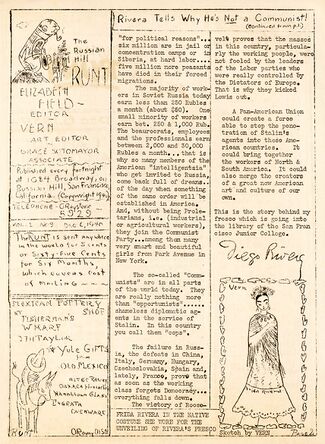 The
Russian
Hill
RUNT
ELIZABETH
FIELD-
EDITOR
VERN
ART EDITOR
HORACE SOTOMAYOR
ASSOCIATE
Published every fortnight
at 1018 Broadway, on
Russian Hill, San Francisco
California (Copyright 1940)
TELEPHONE - ORdway
8929
VOL. 1 No 9
The RUNT is sent anywhere
in the world for 5 cents or
Sixty-five Cents
for Six Months,
which covers cost
of mailing
MEXICAN POTTERY
SHOP
FISHERMAN'S
WHARF
277 TAYLOR
Yule Gifts
from
OLD MEXICO
Rivera Tells Why He's Not a Communist!
(Continued from p. 3)
"for political reasons"...
six million are in jail or
concentration camps or in
Siberia, at hard labor...
five million more peasants
have died in their forced
migrations.
The majority of work-
ers in Soviet Russia today
earn less than 250 Rubles
a month (about $60). One
small minority of workers
earn bet. 250 & 1,000 Rub.
The beaurocrat, employees
and the professionals earn
between 2,000 and 30,000
Rubles a month...that is
why so many members of the
American "intelligentsia"
who get invited to Russia,
come back full of dreams
of the day when something
of the same order will be
established in America.
And, without being Prole-
tarians, i.e. (industrial
or agricultural workers),
they join the Communist
Party....among them many
very smart and beautiful
girls from Park Avenue in
New York.
The so-called "Comm-
unists" are in all parts
of the world today. They
are really nothing more
than "opportunists".....
shameless diplomatic ag-
ents in the service of
Stalin. In this country
you call them "cops".
The failure in Russ-
ia, the defects in China,
Italy, Germany, Hungary,
Czechoslovakia, Spain and,
lately, France, prove that
as soon as the working
class forgets Democracy...
everything falls down.
The victory of Roose-
velt proves that the masses
in this country, particula-
rly the working people, were
not fooled by the leaders
of the Labor parties who
were really controlled by
the Dictators of Europe.
That is why they kicked
Lewis out.
A Pan-American Union
could create a force
able to stop the pene-
tration of Stalin's
agents into these Ame-
rican countries. It
could bring together
the workers of North &
South America. It could
also merge the creators
of a great new American
art and culture of our
own.
This is the story behind my
fresco which is going into
the library of the San Fran
cisco Junior College.
Diego Rivera
Vern
FRIDA RIVERA IN THE NATIVE
COSTUME SHE WORE FOR THE
UNVEILING OF RIVERA'S FRESCO
Sketch by VERN